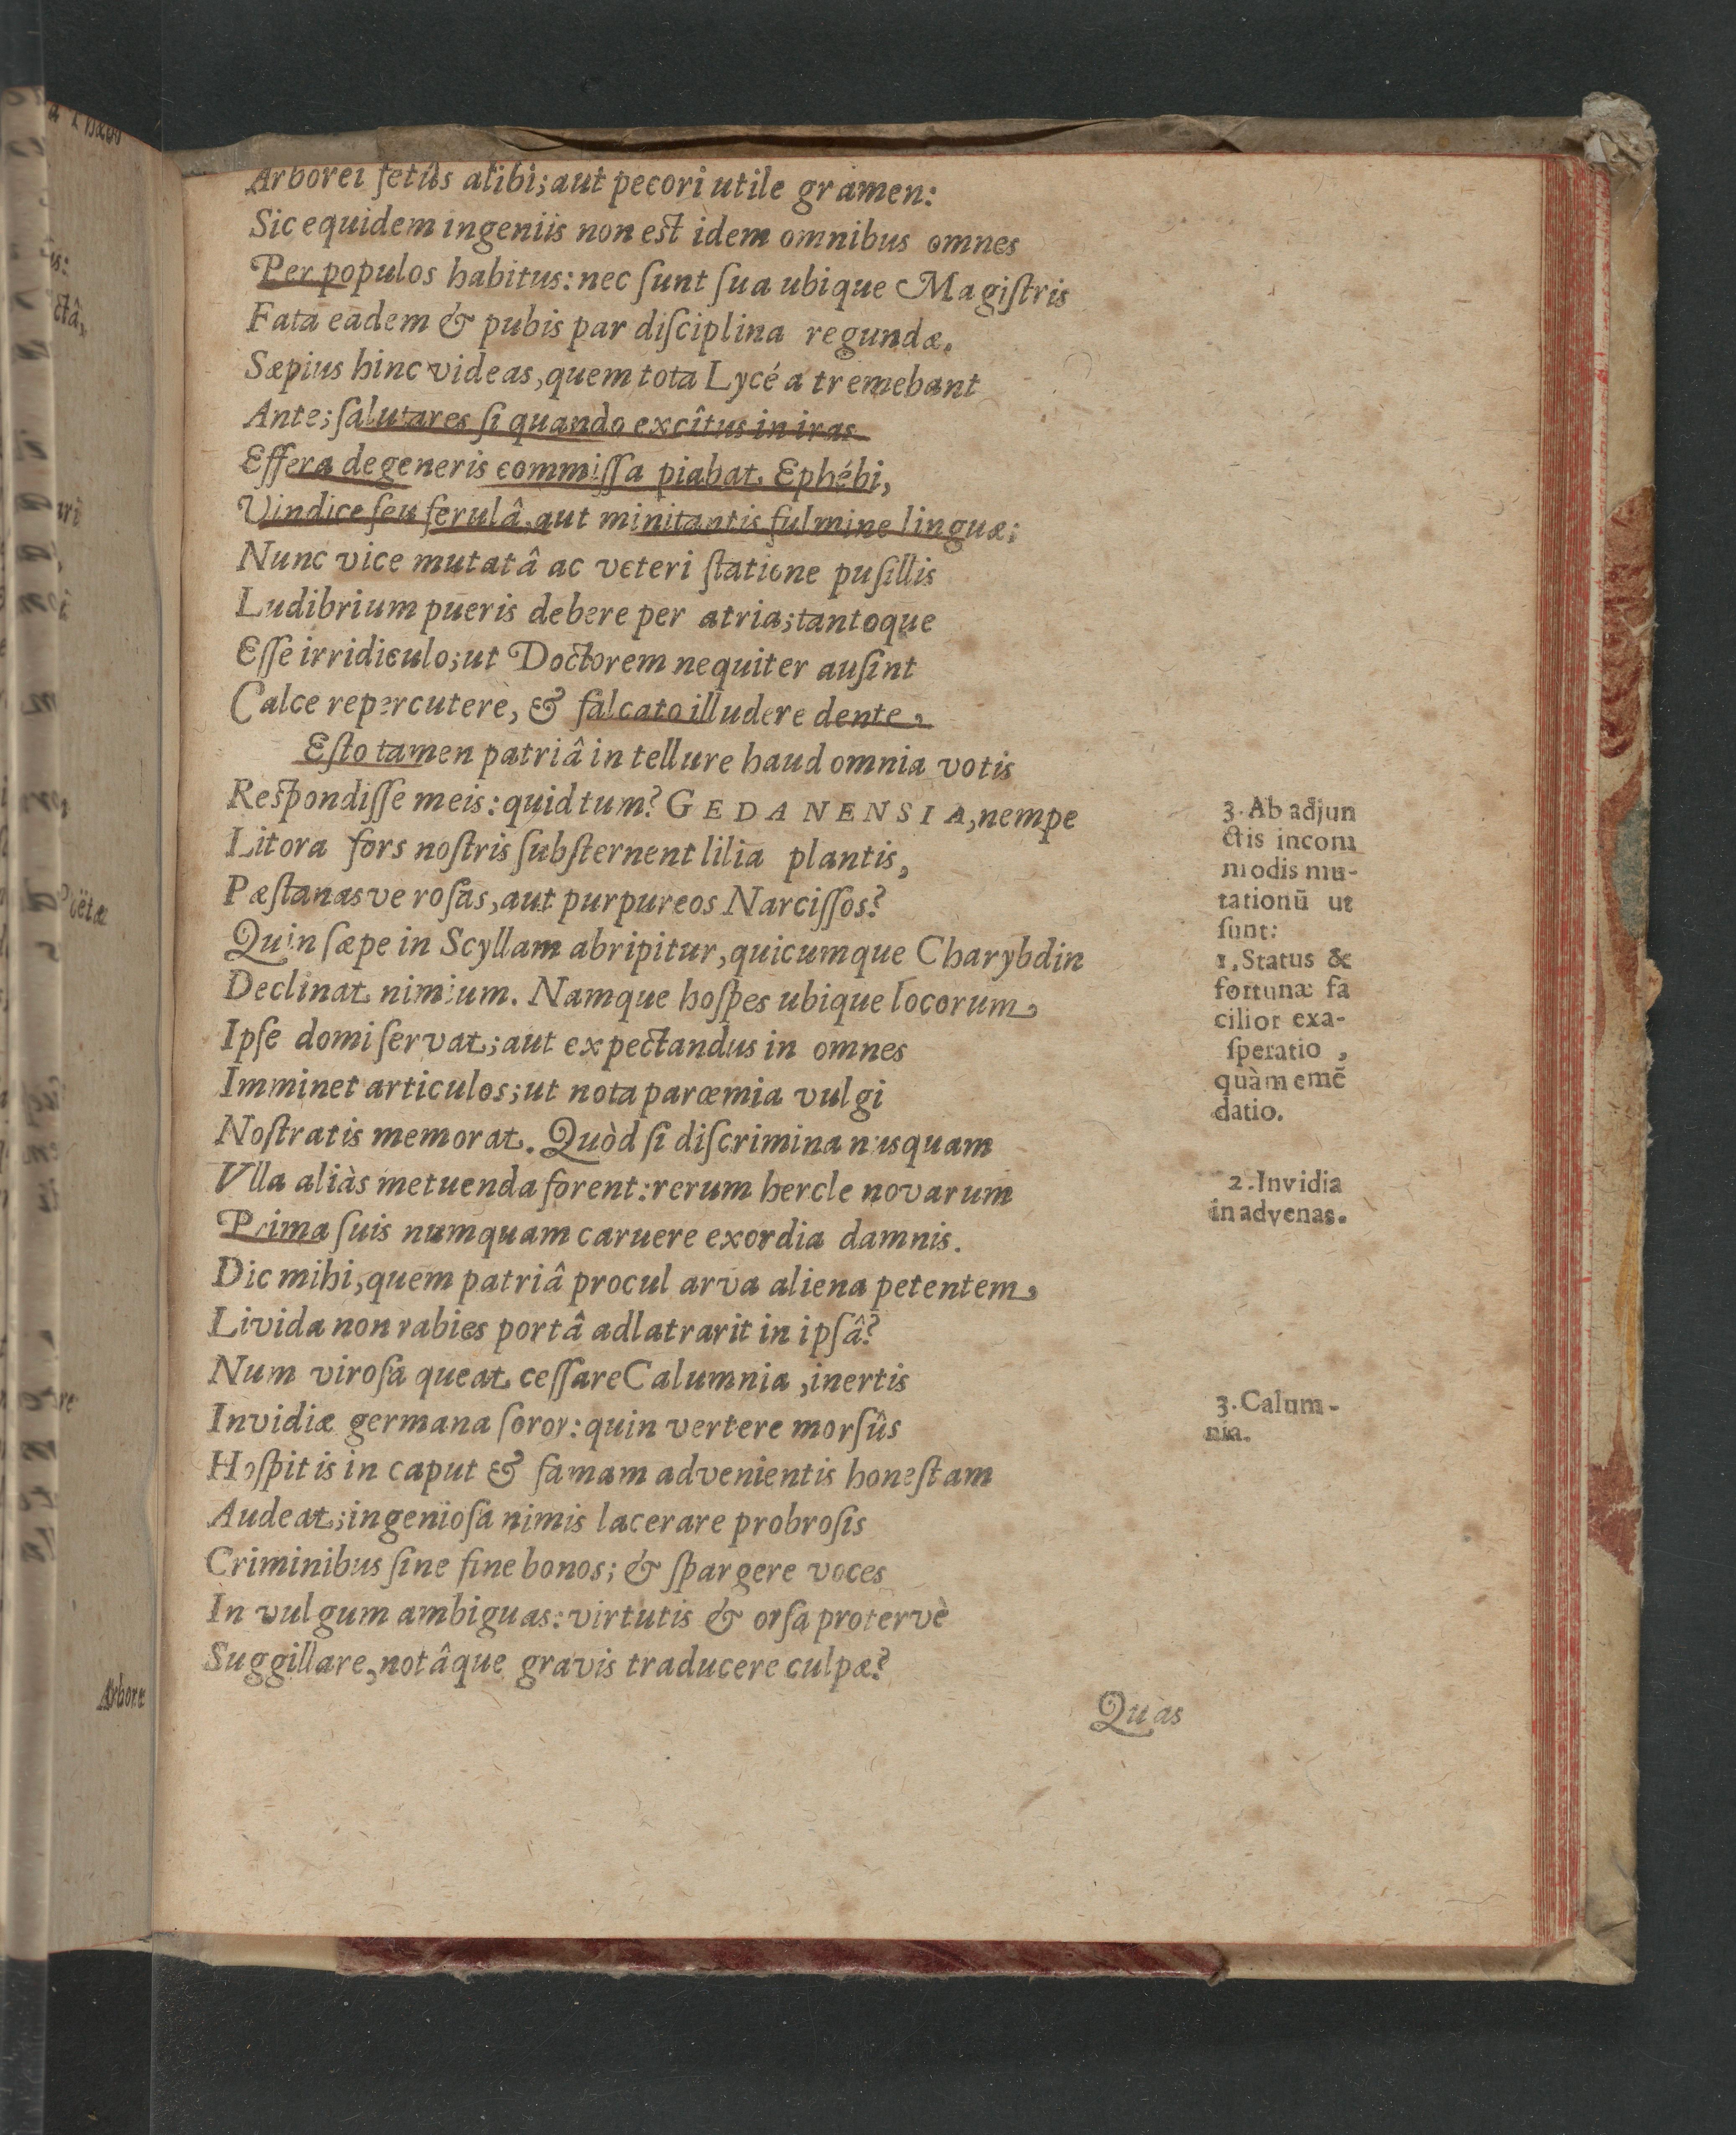 Arborei fetûs alibi; aut pecori utile gramen:
Sic equidem ingeniis non est idem omnibus omnes
Per populos habitus: nec ſunt ſua ubique Magiſtris
Fata eadem & pubis par diſciplina regundæ.
Sæpius hinc videas, quem tota Lycéa tremebant
Ante; ſalutares ſi quando excîtus in iras
Effera degeneris commiſſa piabat Ephébi,
Vindice ſeu ferulâ, aut minitantis fulmine linguæ:
Nunc vice mutatâ ac veteri ſtatione puſillis
Ludibrium pueris debere per atria; tantoque
Eſſe irridiculo; ut Doctorem nequiter auſint
Calce repercutere, & falcato illudere dente,
Eſto tamen patriâ in tellure haud omnia votis
Reſpondiſſe meis: quid tum? GEDANENSIA, nempe
Litora fors noſtris ſubſternent lilia plantis,
Pæſtanasve roſas, aut purpureos Narciſſos?
Quin ſæpe in Scyllam abripitur, quicumque Charybdin
Declinat nimium. Namque hoſpes ubique locorum,
Ipſe domi ſervat; aut expectandus in omnes
Imminet articulos; ut nota parœmia vulgi
Noſtratis memorat. Quòd ſi diſcrimina nusquam
Vlla aliàs metuenda forent: rerum hercle novarum
Prima ſuis numquam caruere exordia damnis.
Dic mihi, quem patriâ procul arva aliena petentem,
Livida non rabies portâ adlatrarit in ipſâ?
Num viroſa queat ceſſare Calumnia, inertis
Invidiæ germana ſoror: quin vertere morſûs
Hoſpitis in caput & famam advenientis honeſtam
Audeat; ingenioſa nimis lacerare probroſis
Criminibus ſine fine bonos; & ſpargere voces
In vulgum ambiguas: virtutis & orſa protervè
Suggillare, notâque gravis traducere culpæ?
Quas
3. Ab adjun
ctis incom
modis mu-
tationū ut
ſunt:
1. Status &
fortunæ fa
cilior exa-
ſperatio,
quàm emē
datio.
2. Invidia
in advenas.
3. Calum-
nia.
Arbore